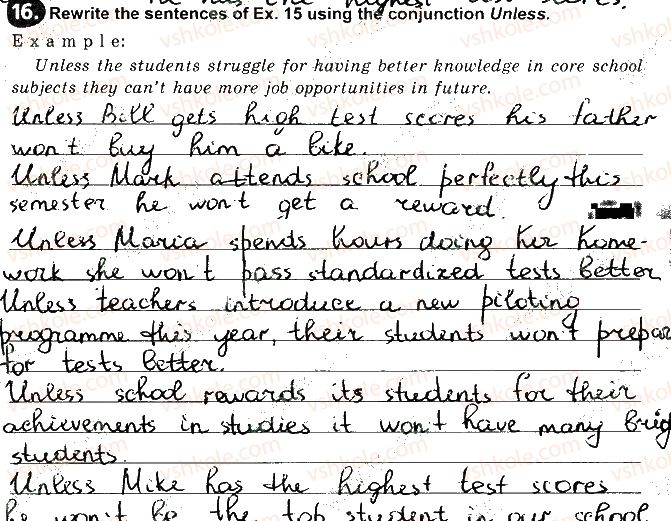 he has the highest test scores.
16. Rewrite the sentences of Ex. 15 using the conjunction Unless.
Example:
Unless the students struggle for having better knowledge in core school
subjects they can't have more job opportunities in future.
Unless Bill gets high test scores his father
won't buy him a bike.
Unless Mark attends school perfectly this
semester he won't get a reward.
Unless Maria spends hours doing her home-
work she won't pass standardized tests better
Unless teachers introduce a new piloting
programme this year, their students won't prepar
for tests better.
Unless school rewards its students for their
achievements in studies it won't have many brig
students.
Unless Mike has the highest test scores
he won't be the top student in our school